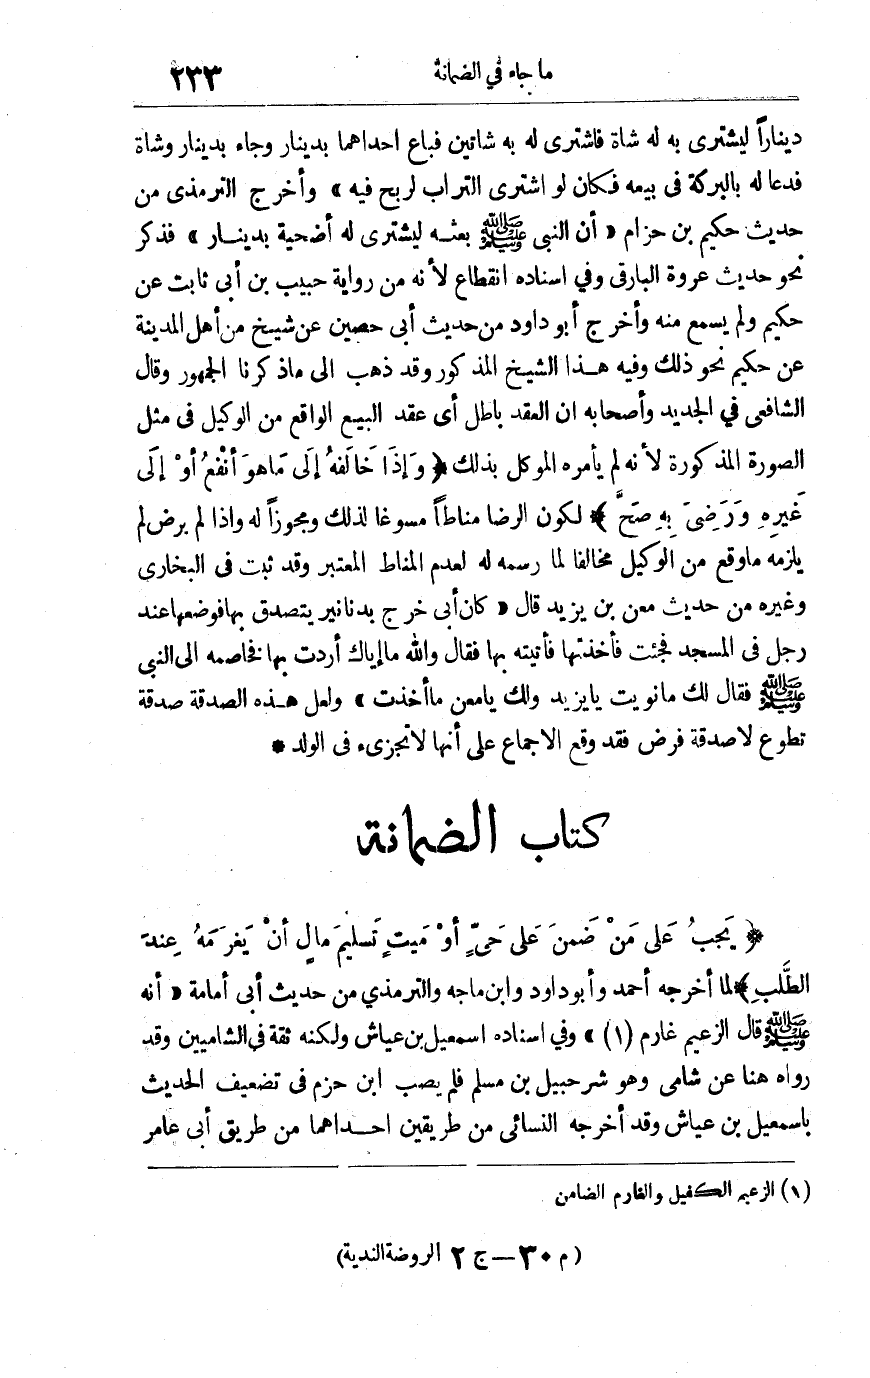 ما جاء في الضمانة ٢٣٣
ديناراً ليشترى به له شاة فاشترى له به شاتين فباع احداهما بدينار وجاء بدينار وشاة
فدعا له بالبركة فى بيعه فكان لو اشترى التراب لربح فيه » وأخرج الترمذى من
حديث حكيم بن حزام « أن النبى ﷺ بعثه ليشترى له أضحية بدينار » فذكر
نحو حديث عروة البارقى وفي اسناده انقطاع لأنه من رواية حبيب بن أبى ثابت عن
حكيم ولم يسمع منه وأخرج أبو داود من حديث أبى حصين عن شيخ من أهل المدينة
عن حكيم نحو ذلك وفيه هذا الشيخ المذكور وقد ذهب الى ما ذكرنا الجمهور وقال
الشافعى في الجديد وأصحابه ان العقد باطل أى عقد البيع الواقع من الوكيل فى مثل
الصورة المذكورة لأنه لم يأمره الموكل بذلك ﴿ وَإِذَا خَالَفهُ إِلَى مَاهوَ أَنْفعُ أوْ إِلَى
غَيرِهِ وَرَضِىَ بِهِ صَحَّ ﴾ لكون الرضا مناطاً مسوغا لذلك ومجوزاً له واذا لم يرض لم
يلزمه ماوقع من الوكيل مخالفا لما رسمه له لعدم المناط المعتبر وقد ثبت فى البخارى
وغيره من حديث معن بن يزيد قال « كان أبى خرج بدنانير يتصدق بها فوضعها عند
رجل فى المسجد فجئت فأخذتها فأتيته بها فقال والله ما إياك أردت بها فخاصمه الى النبى
ﷺ فقال لك مانويت يايزيد ولك يامعن ماأخذت » ولعل هذه الصدقة صدقة
تطوع لاصدقة فرض فقد وقع الاجماع على أنها لاتجزىء فى الولد *
كتاب الضمانة
﴿ يَجبُ عَلى مَنْ ضَمنَ عَلى حَىٍّ أوْ مَيتٍ تَسليمَ مالٍ أنْ يَغرَمَهُ عِندَ
الطَّلبِ ﴾ لما أخرجه أحمد وأبو داود وابن ماجه والترمذي من حديث أبى أمامة « أنه
ﷺ قال الزعيم غارم (١) » وفي اسناده اسمعيل بن عياش ولكنه ثقة في الشاميين وقد
رواه هنا عن شامى وهو شرحبيل بن مسلم فلم يصب ابن حزم فى تضعيف الحديث
باسمعيل بن عياش وقد أخرجه النسائى من طريقين احداهما من طريق أبى عامر
(١) الزعيم الكفيل والغارم الضامن
(م ٣٠ — ج ٢ الروضة الندية)